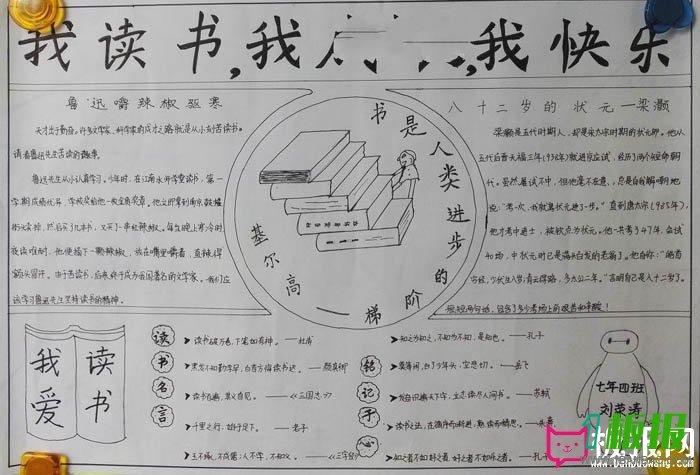 我读书,我
,我快乐
鲁迅嚼辣椒驱寒
天才出于勤奋。许多文学家、科学家的成才之路就是从小刻苦读书。
请看鲁迅先生苦读的趣事。
鲁迅先生从小认真学习。少年时，在江南水师学堂读书，第一
学期成绩优异，学校奖给他一枚金质奖章。他立即拿到南京鼓楼
街头卖掉，然后买了几本书，又买了一串红辣椒。每当晚上寒冷时
夜读难耐，他便摘下一颗辣椒，放在嘴里嚼着，直辣得
额头冒汗。由于苦读书，后来终于成为我国著名的文学家。我们应
该学习鲁迅先生坚持读书的精神。
书是人类进步的阶梯
一高尔基
八十二岁的状元一梁灏
梁灏是五代时期人，却是宋太宗时期的状元郎。他从
五代后晋天福三年(938年)就进京应试，经历了两个短命朝
代。虽然屡试不中，但他毫不在意，总是自我解嘲地
说："考一次，我就离状元近了一步。"直到
(985年)，
他才考中进士，被钦点为状元。他一共考了47年，会试
40场，中状元时已是满头白发的老翁了。他自称："皓首
穷经，少伏生八岁；青云得路，多太公二年。"言明自己是八十二岁了。
短短两句话，包含了多少考场上的艰苦和辛酸！
我爱读书
读书名言
读书破万卷，下笔如有神。——杜甫
黑发不知勤学早，白首方悔读书迟。——颜真卿
读书百遍，其义自见。——《三国志》
千里之行，始于足下。——老子
玉不琢，不成器；人不学，不知义。——《三字经》
铭记于心
知之为知之，不知为不知，是知也。——孔子
莫等闲，白了少年头，空悲切。——岳飞
发愤识遍天下字，立志读尽人间书。——苏轼
读书之法，在循序而渐进，熟读而精思。——朱熹
知之者不如好之者，好之者不如乐之者。——孔子
七年四班
刘荣涛
板报网
www.banbaowang.com